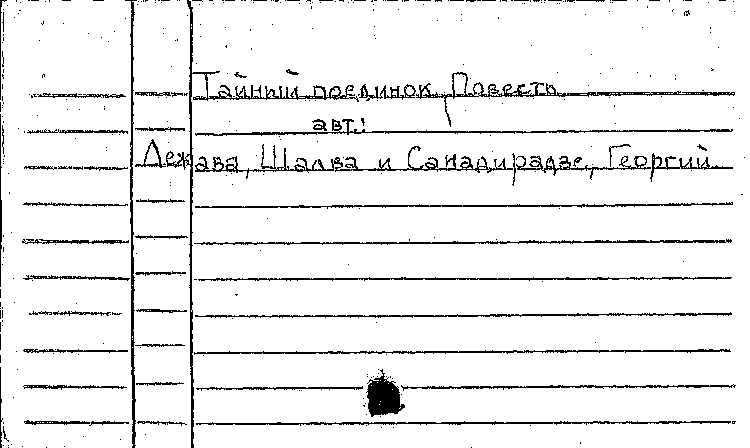 Тайный поединок, Повесть
авт.:
Лежава, Шалва и Санадирадзе, Георгий.